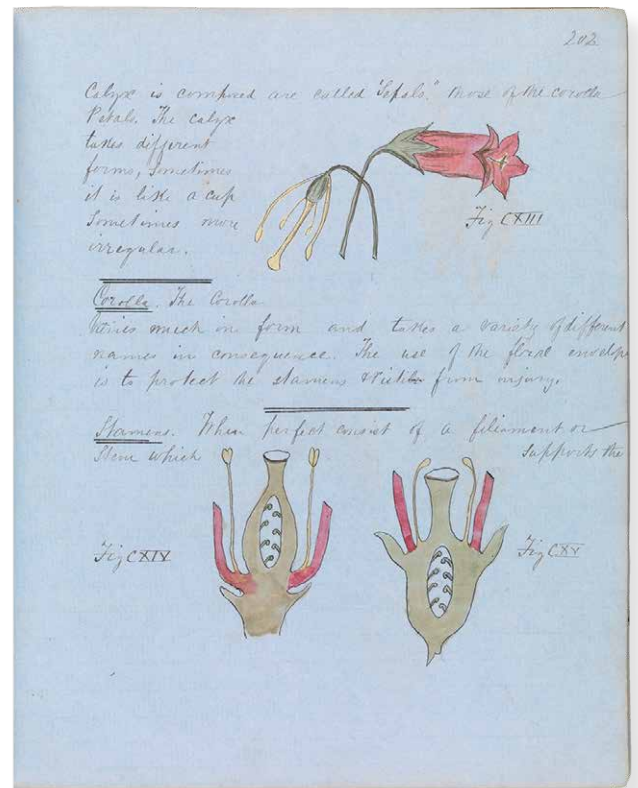 202
Calyx is composed are called "Sepals." those of the corolla
Petals. The calyx
takes different
forms, Sometimes
it is like a cup
Sometimes more
irregular.
Fig CXIII
Corolla. The Corolla
Varies much in form and takes a variety of different
names in consequence. The use of the floral envelope
is to protect the stamens & Pistils from injury.
Stamens. When perfect consist of a filiament or
Stem which supports the
Fig CXIV
Fig CXV